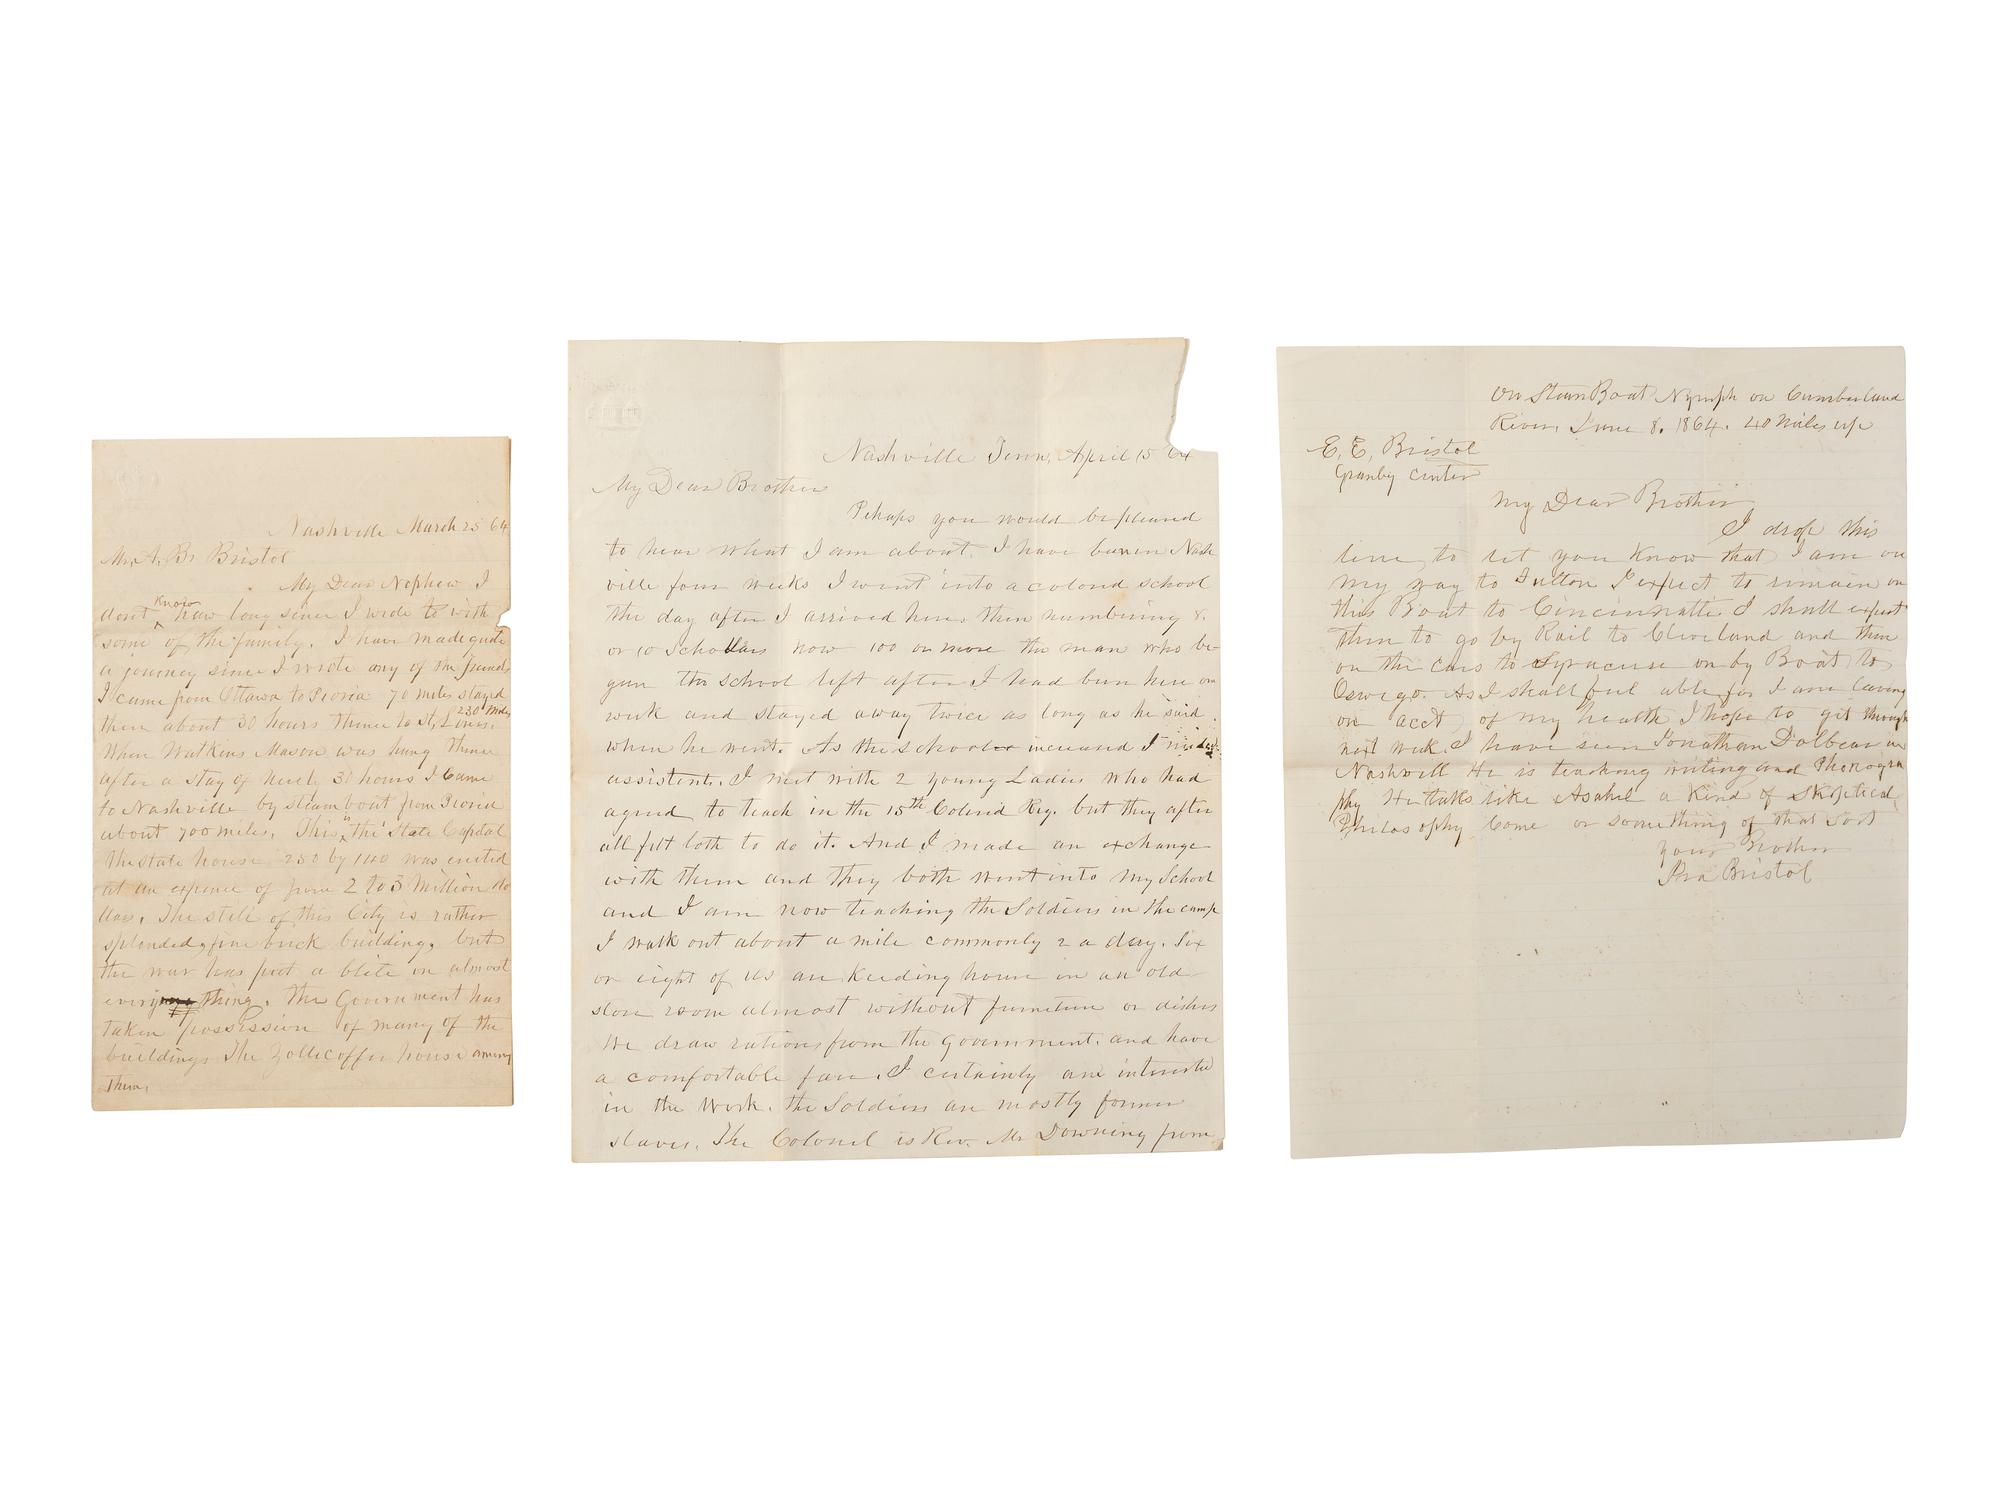 Nashville March 25 64
Mr, A. Br Bristol
My Dear Nephew I
dont know how long since I wrote to with
some of the family. I have made quite
a journey since I wrote any of the friends
I came from Ottawa to Pioria 70 miles stayed
then about 30 hours thence to St, Louis. 230 Miles
When Watkins Mason was hung thence
after a stay of 30 hours I Came
to Nashville by steamboat from Pioria
about 700 miles. This is the State Capital
The state house 250 by 140 was erected
at an expence of from 2 to 3 Million do
llars. The stile of this City is rather
splended, fine brick building, but
the war has put a blite on almost
every thing. The Government has
taken possession of many of the
buildings The Zollicoffer house among
Them.
Nashville Tenn, April 15 64
My Dear Brother
Pehaps you would be pleased
to hear what I am about. I have been in Nash
ville four weeks I went into a colored school
the day after I arrived here then numbering 8.
or 10 Schollars now 100 or more the man who be-
gun the school left after I had been here on
week and stayed away twice as long as he said
when he went. As the school increased I needed
assistents. I met with 2 young Ladies who had
agreed to teach in the 15th Colored Reg. but they after
all felt loth to do it. And I made an exchange
with them and they both went into my School
and I am now teaching the Soldiers in the camp
I walk out about a mile commonly 2 a day. Six
or eight of us are keeding house in an old
store room almost without furniture or dishes
We draw rations from the Government. and have
a comfortable fare. I certainly am interested
in the Work. The Soldiers are mostly former
slaves. The Colonel is Rev. Mr Downing from
On Steam Boat Nymph on Cumberland
River, June 8, 1864. 40 Miles up
E, E, Bristol
Granby Center
My Dear Brother
I drop this
line to let you Know that I am on
my way to Fulton I expect to remain on
this Boat to Cincinnatti I shall expect
then to go by Rail to Cleveland and then
on the cars to Syracuse or by Boat to
Oswego. As I shall feel able for I am leaving
on acct of my health I hope to get through
next week. I have seen Jonathan Dolbear in
Nashvill He is teaching writing and Phonogra
phy He talks like Asahel a Kind of Skeptical
Philosophy Come or something of that sort
your Brother
Ira Bristol